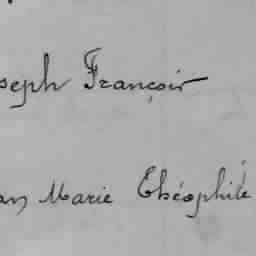 seph François
an Marie Théophile